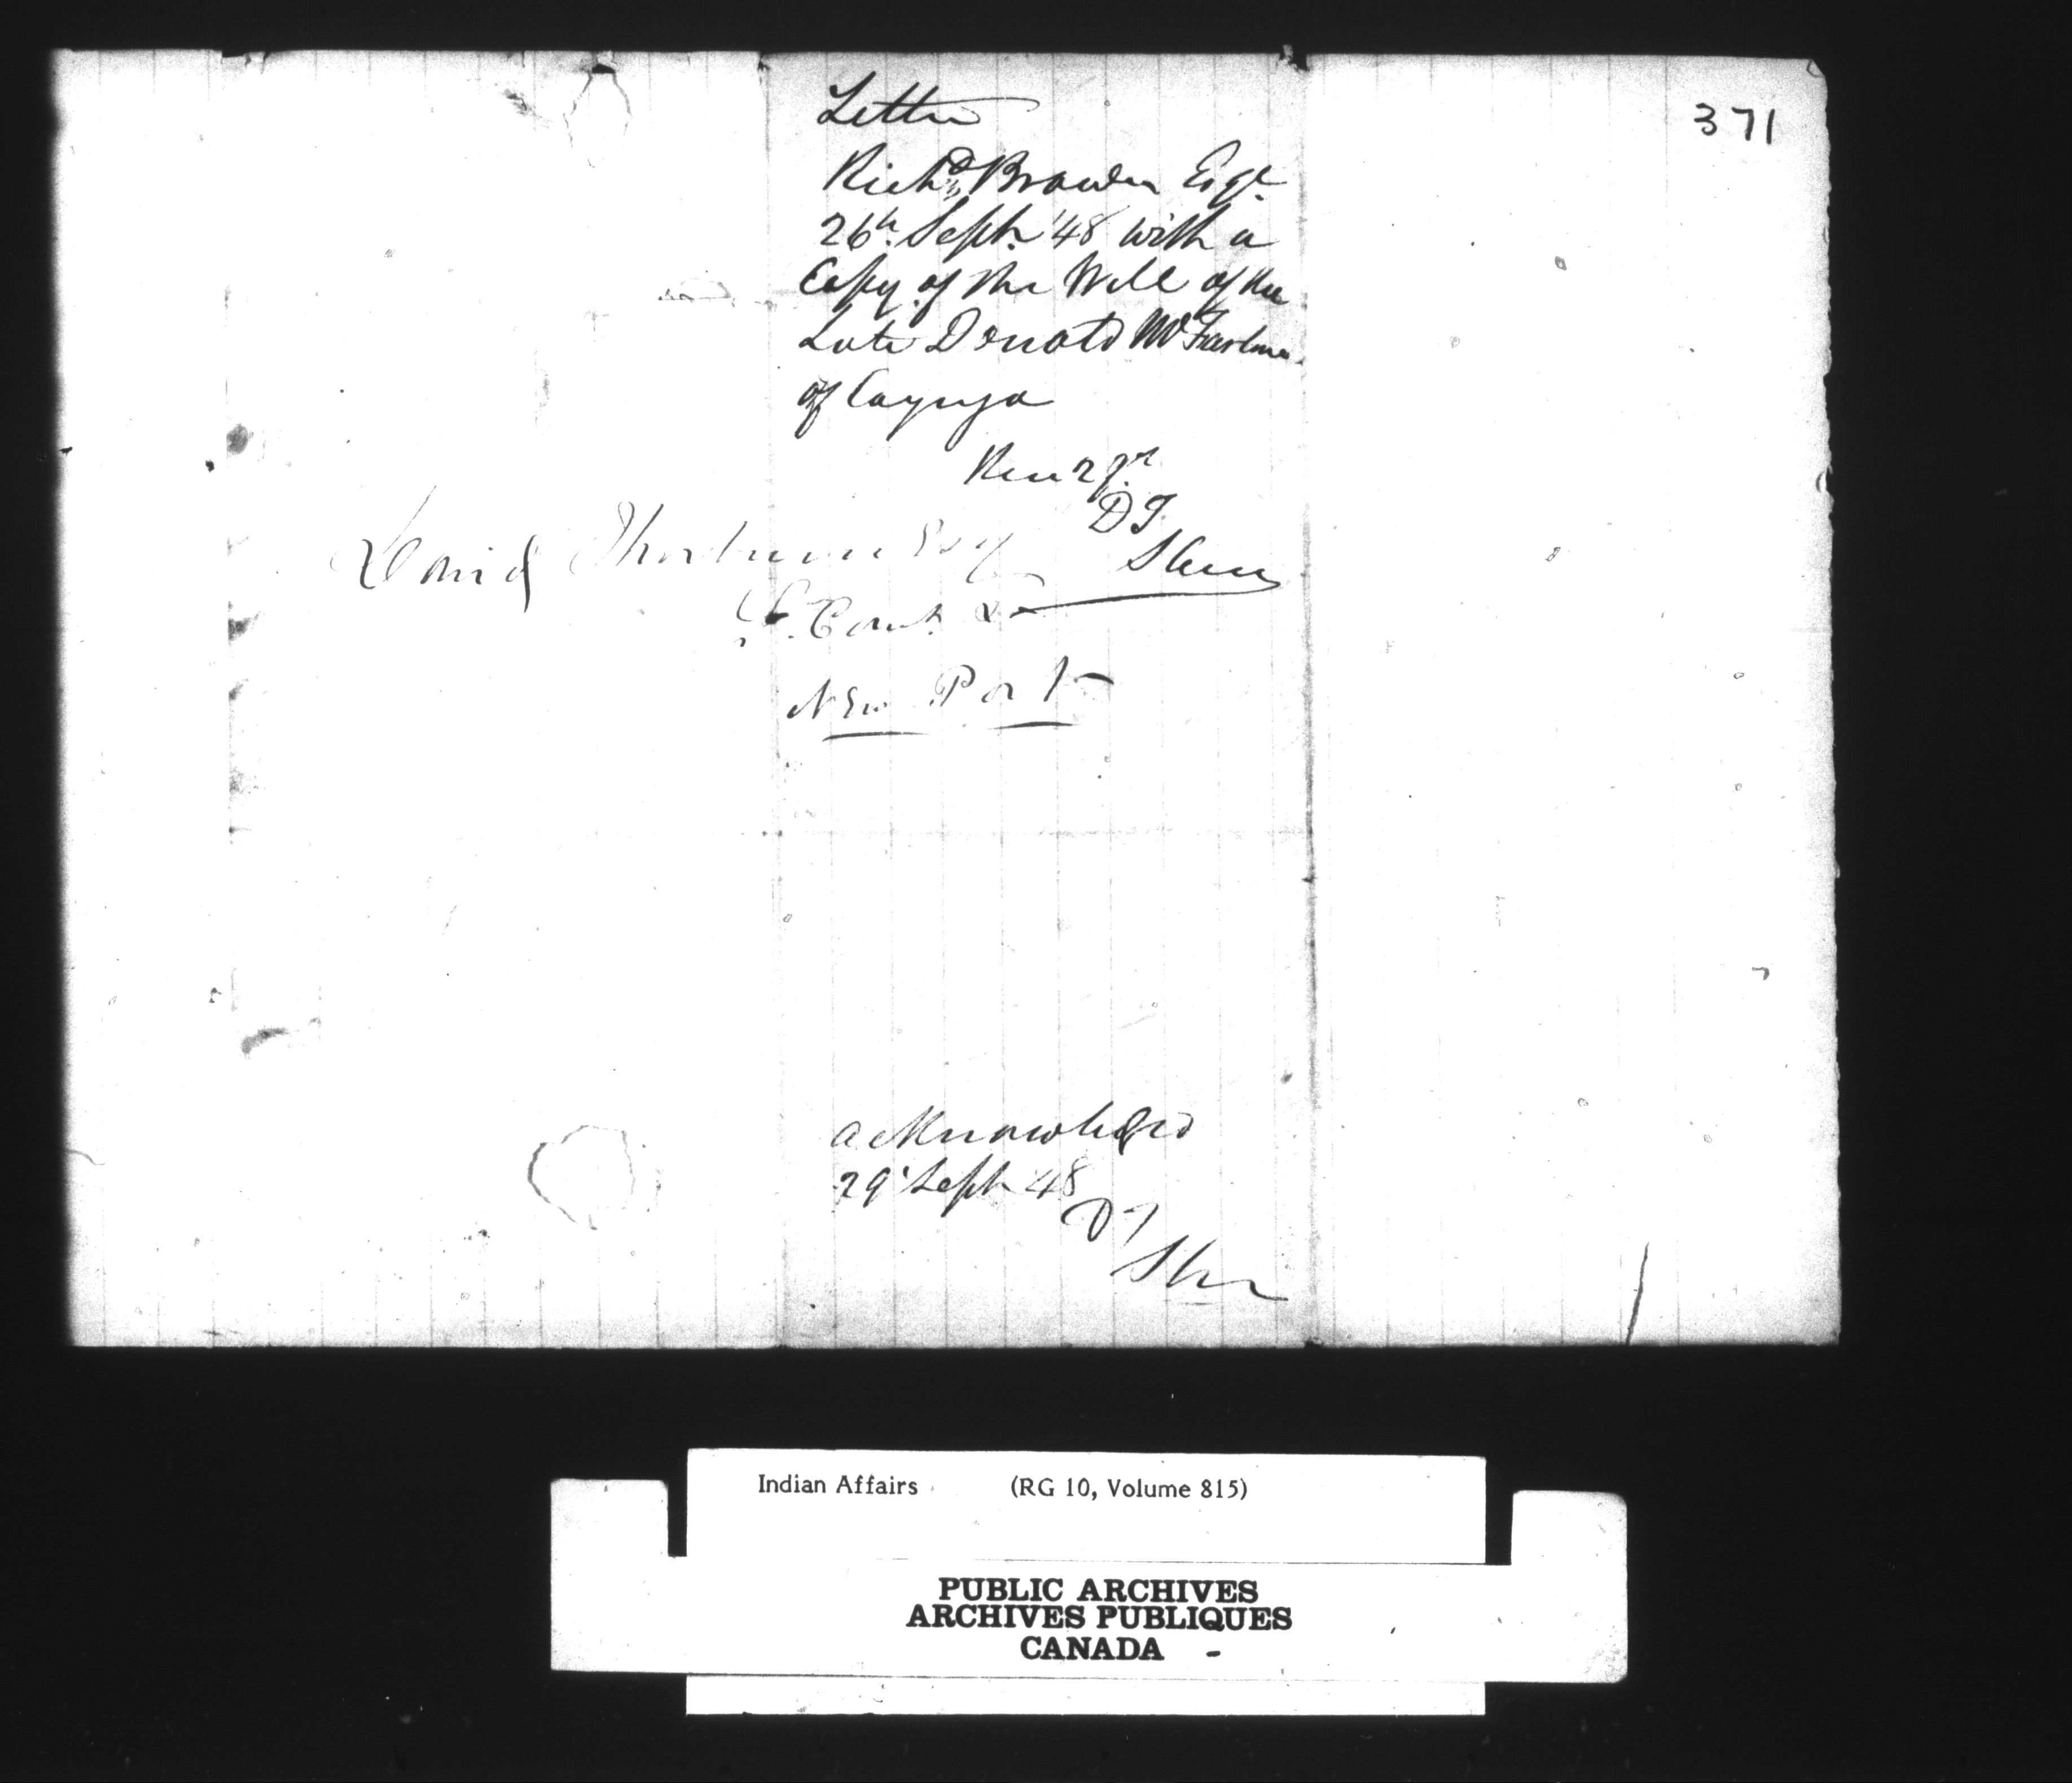 371
Letter
Richd Brown Esqr
26th Sept. '48 with a
Copy of the Will of the
Late Donald McFarlane
of Cayuga
Rec 27th
DT
David Thorburn Esq
New Port
acknowledged
29 Sept 48
DT
Indian Affairs (RG 10, Volume 815)
PUBLIC ARCHIVES
ARCHIVES PUBLIQUES
CANADA